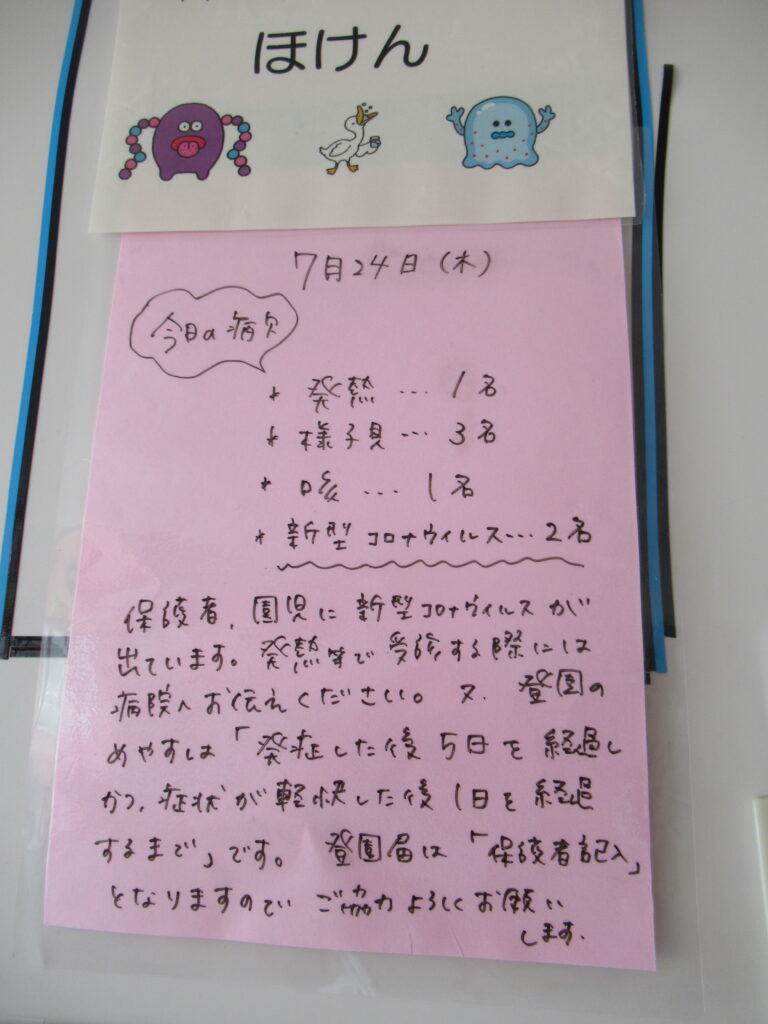 ほけん
7月24日(木)
今日の病欠
* 発熱 … 1名
* 様子見 … 3名
* 咳 … 1名
* 新型コロナウィルス … 2名
保護者、園児に新型コロナウィルスが
出ています。発熱等で受診する際には
病院へお伝えください。又、登園の
めやすは「発症した後5日を経過し
かつ、症状が軽快した後1日を経過
するまで」です。 登園届は「保護者記入」
となりますので ご協力よろしくお願い
します.